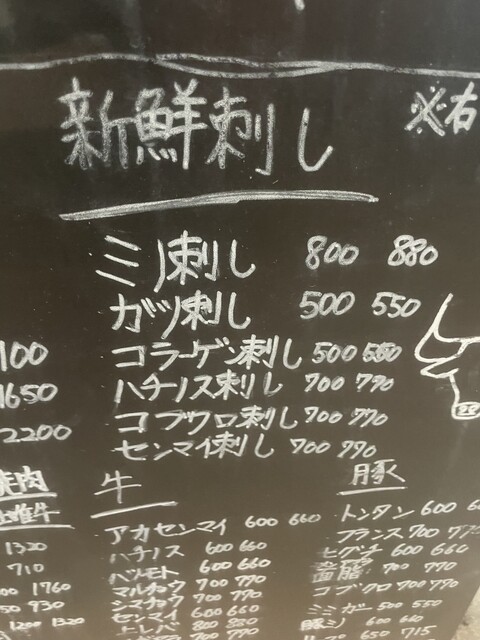 新鮮刺し
※右
ミノ刺し 800 880
ガツ刺し 500 550
コラーゲン刺し 500 550
ハチノス刺し 700 770
コブクロ刺し 700 770
センマイ刺し 700 770
100
1650
2200
焼肉
1320
710
1760
930
1200 1320
牛
アカセンマイ 600 660
ハチノス 600 660
ハツモト 600 660
マルチョウ 700 770
シマチョウ 700 770
センマイ 600 660
上レバー 800 880
豚
トンタン 600
フランス 700 770
ヒグチ 600 660
700 770
コブクロ 700 770
ミミガー 500 550
豚ミノ 600 660
650 715